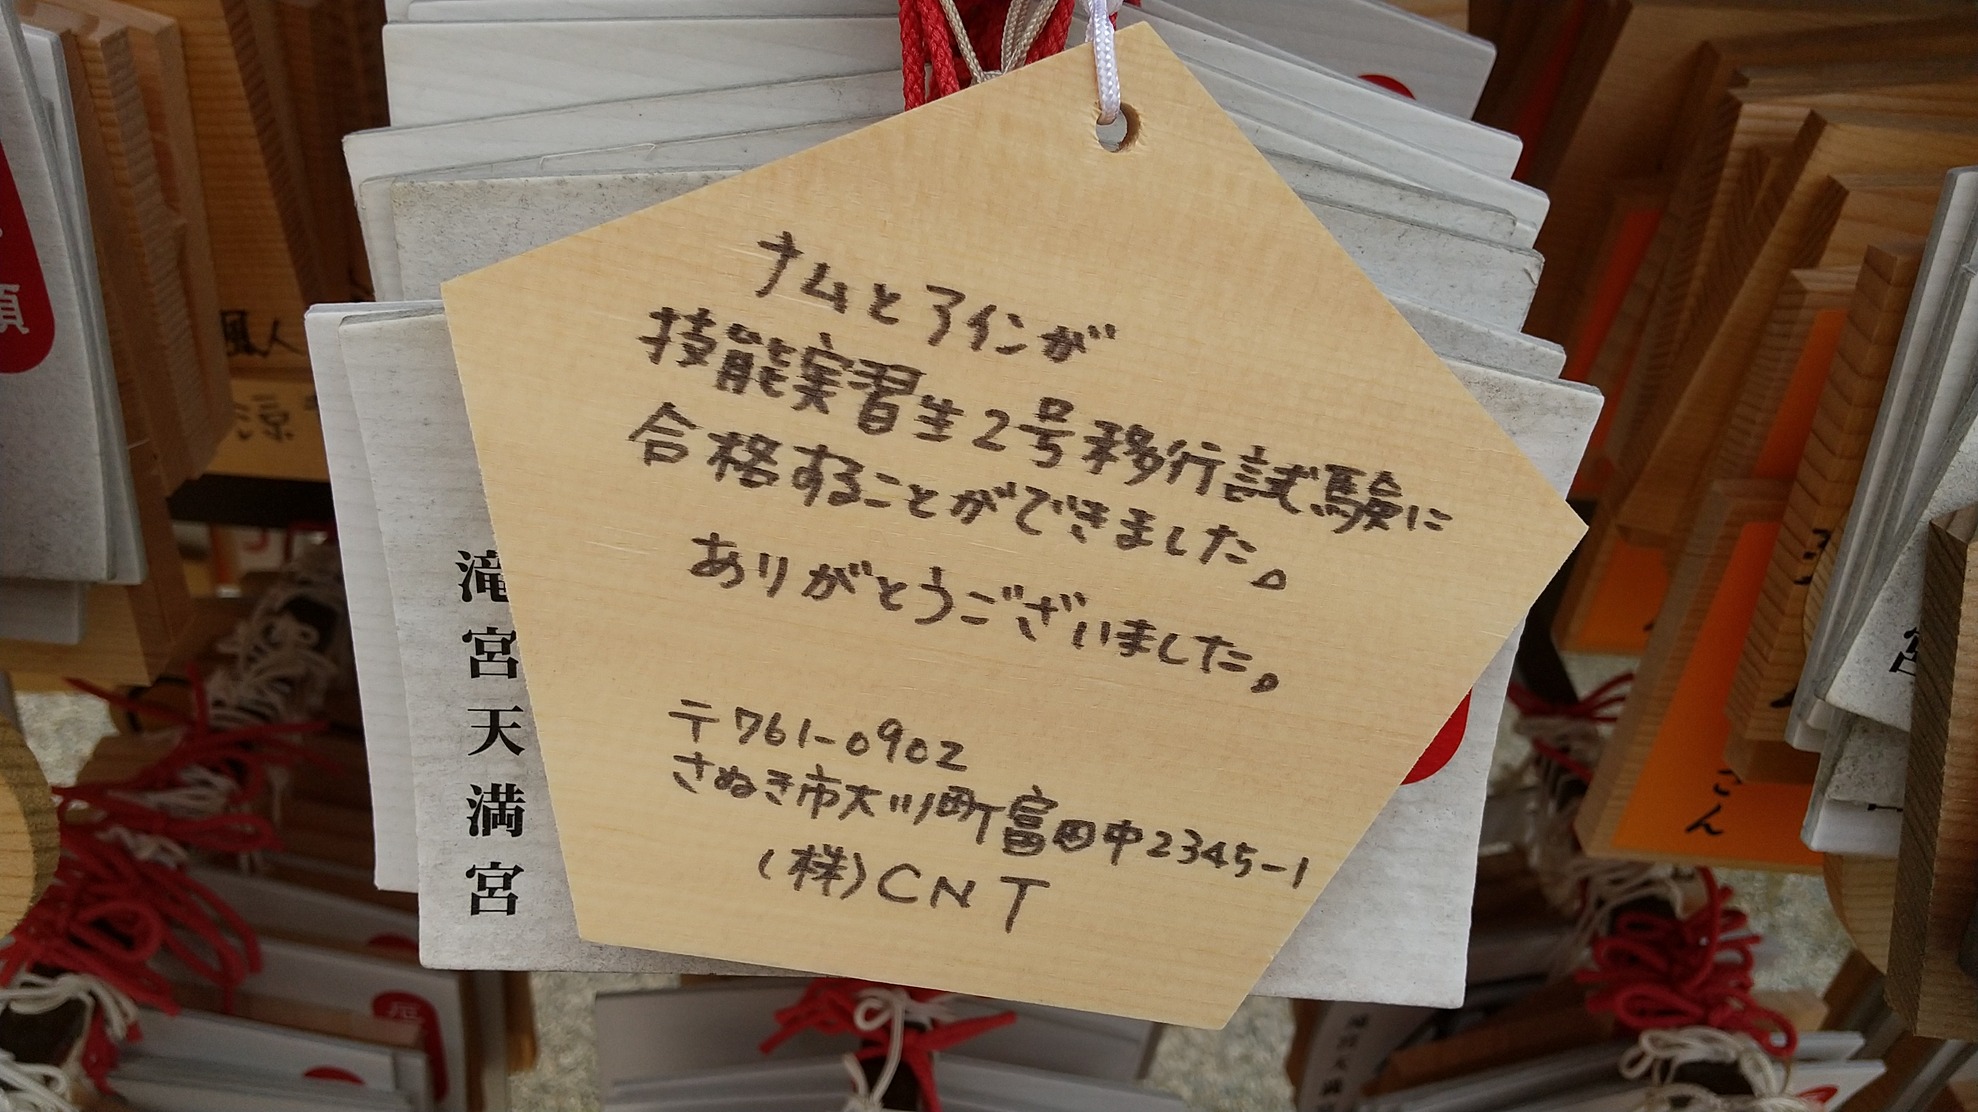 ナムとアインが
技能実習生2号移行試験に
合格することができました。
ありがとうございました。
〒761-0902
さぬき市大川町富田中2345-1
(株)CNT
滝宮天満宮
風人
涼
さん
宮